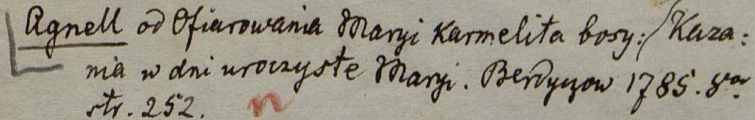 Agnell od Ofiarowania Maryi Karmelita bosy:/ Kaza:
nia w dni uroczyste Maryi. Berdyczow 1785. 8vo
str. 252.